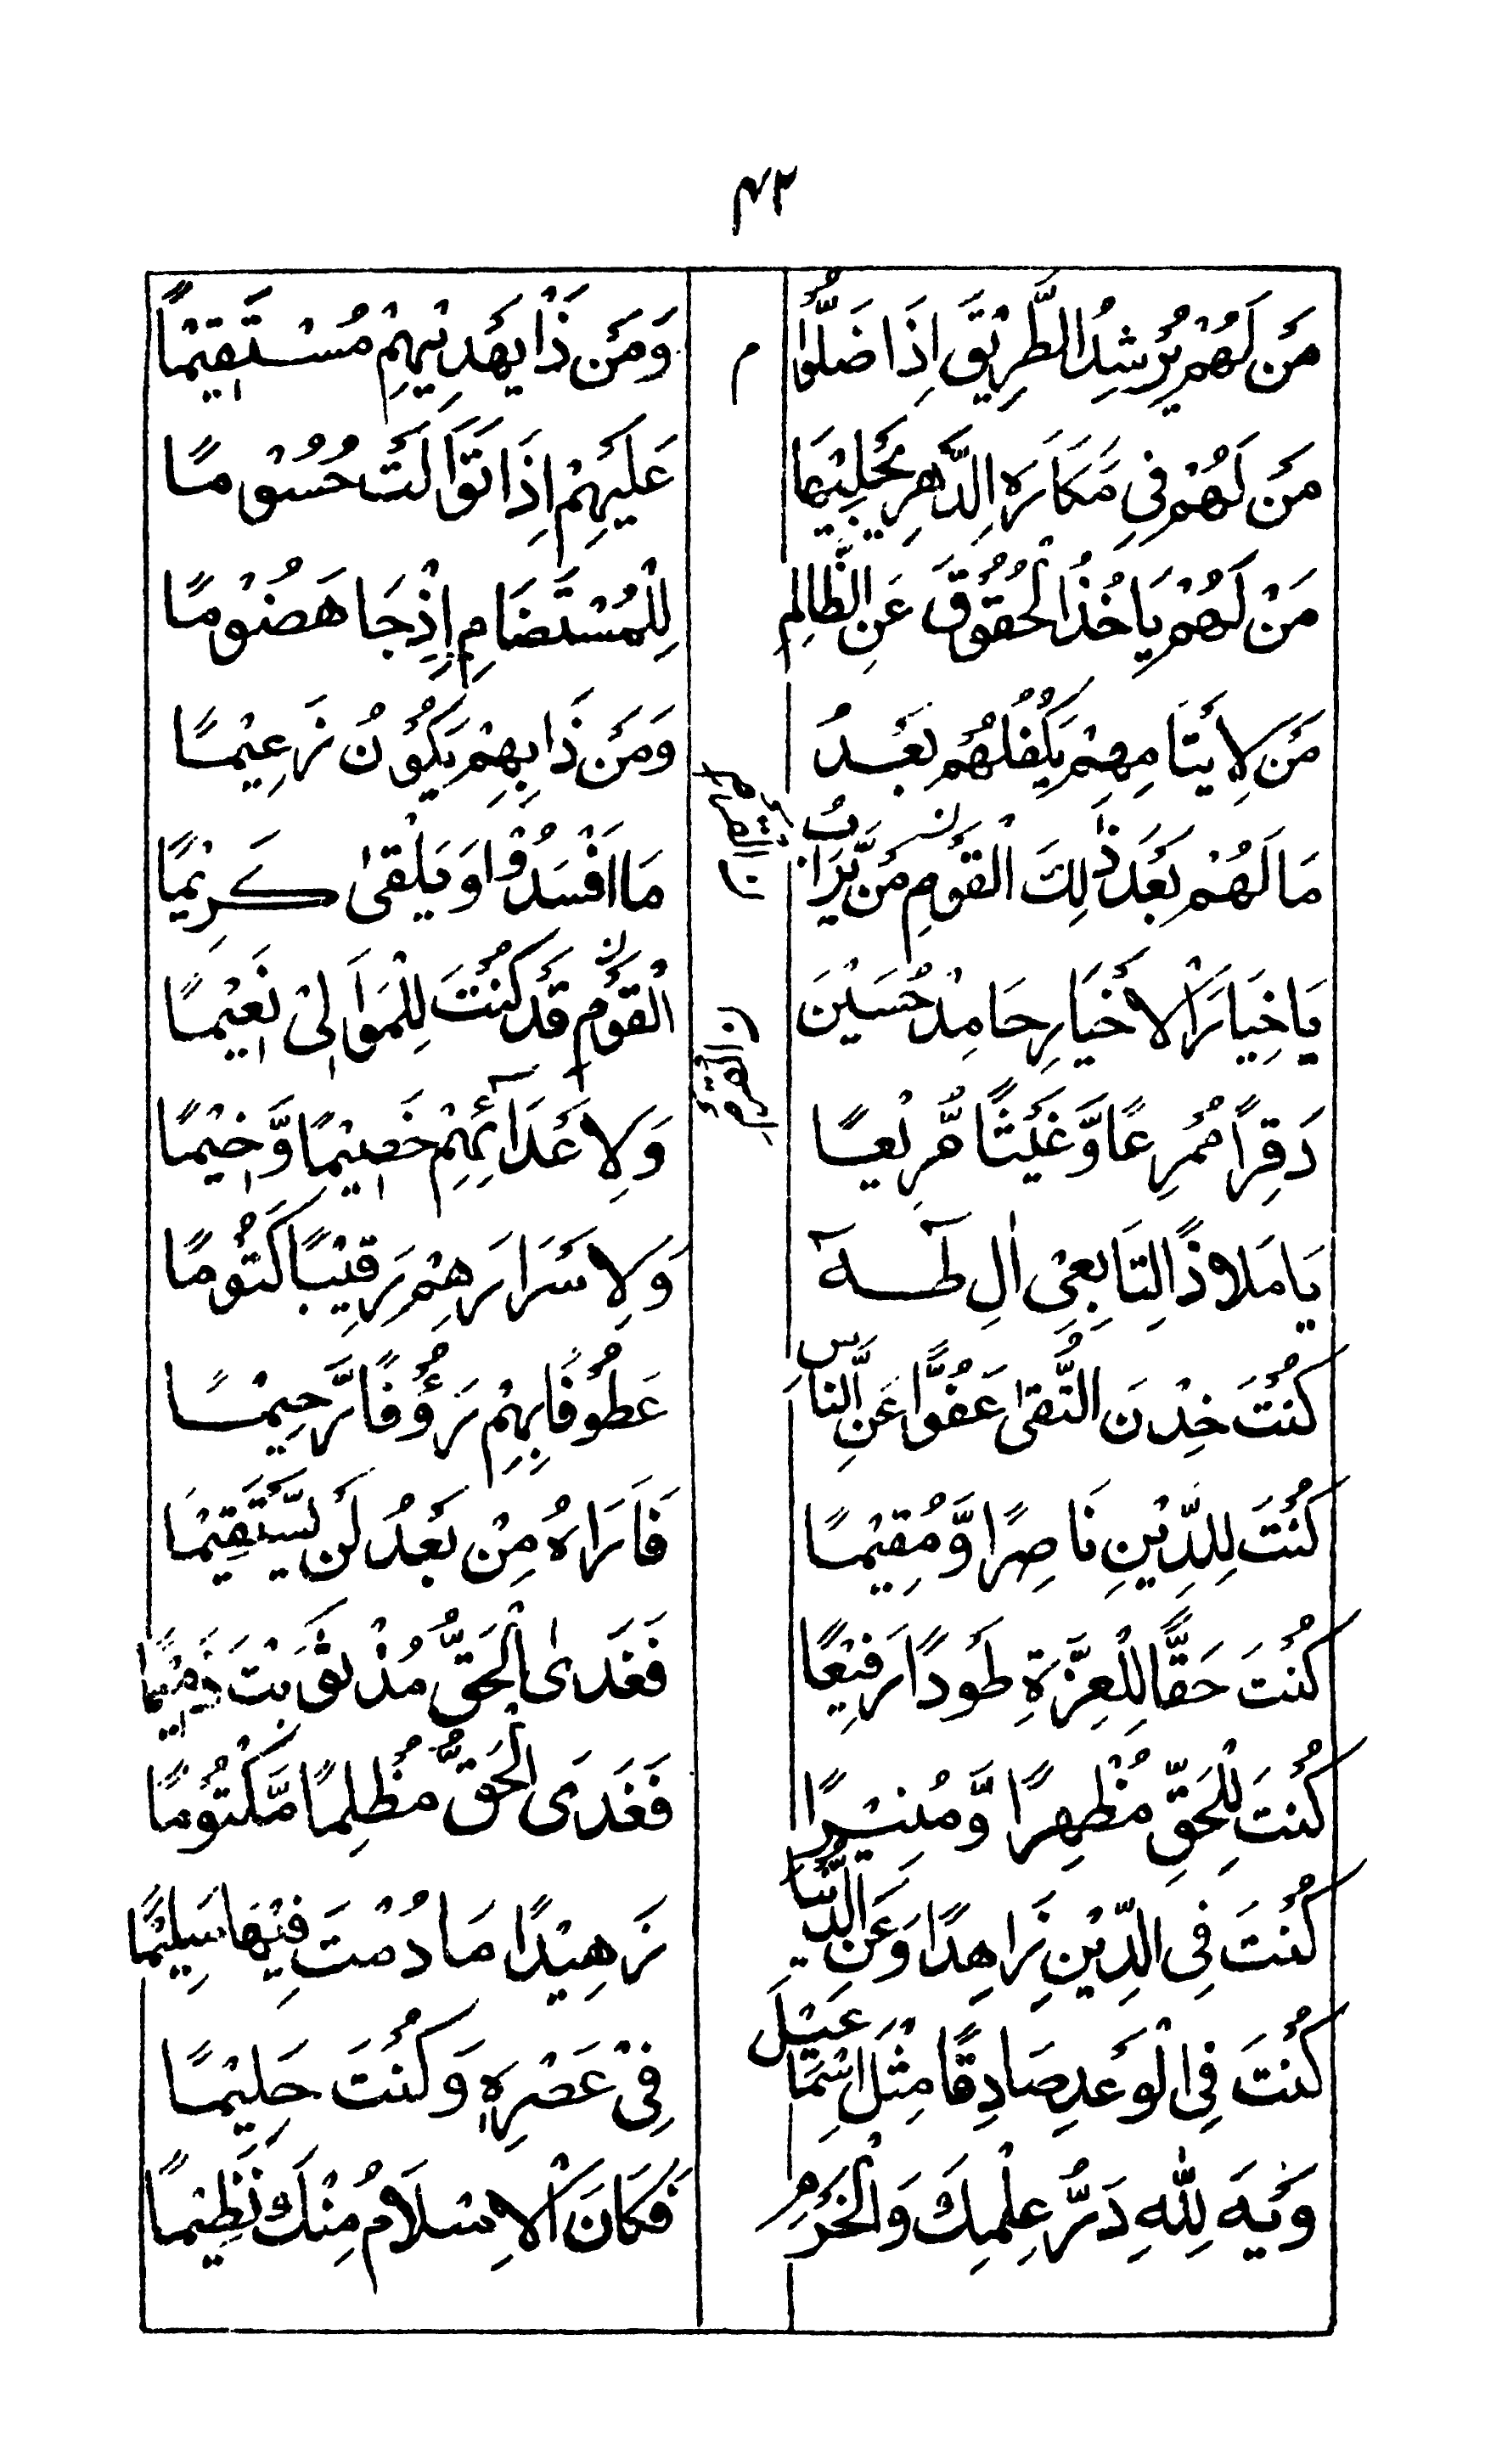 ۴۲
مَن لَهُمْ يُرْشِدُ الطَّرِيْقَ اِذَا ضَلُّوْا م وَمَن ذَا يَهْدِيْهِمْ مُسْتَقِيْمًا
مَن لَهُمْ فِي مَكَارَهِ الدَّهْرِ يُجْلِيْهَا عَلَيْهِمْ اِذَا تَوَالَتْ حُسُوْمًا
مَنْ لَهُمْ يَاخُذُ الْحُقُوْقَ عَنِ الظَّالِمِ لِلْمُسْتَضَامِ اِذْ جَا هَضُوْمًا
مَن لِاَيْتَامِهِمْ يَكْفُلُهُمْ بَعْدُ وَمَن ذَا بِهِمْ يَكُوْنُ زَعِيْمًا
مَا لَهُمْ بَعْدَ ذٰلِكَ الْقَوْمِ مَن يَّرَابُ مَا اَفْسَدُوْا وَيَلْقٰى كَرِيْمًا
يَا خِيَارَ الْاَخْيَارِ حَامِدْ حُسَيْنَ الْقَوْمِ قَدْ كُنْتَ لِلْمَوَالِيْ نَعِيْمًا
القرم
دَقِرًا مُمْرِعًا وَّغَيْثًا مُّرِيْعًا وَلِاَعْدَائِهِمْ خَصِيْمًا وَّخِيْمًا
يَا مَلَاذًا لِتَابِعِيْ اٰلِ طٰهٓ وَلِاَسْرَارِهِمْ رَقِيْبًا كَتُوْمًا
كُنْتَ خِدْنَ التُّقٰى عَفُوًّا عَنِ النَّاسِ عَطُوْفًا بِهِمْ رَؤُفًا رَّحِيْمًا
كُنْتَ لِلدِّيْنِ نَاصِرًا وَّمُقِيْمًا فَارَاهُ مِنْ بَعْدُ لَن يَّسْتَقِيْمَا
كُنْتَ حَقًّا لِلْعِزَّةِ طَوْدًا رَفِيْعًا فَغَدَىٰ الْحَقُّ مُذْ ثَوَيْتَ ذَمِيْمًا
كُنْتَ لِلْحَقِّ مُظْهِرًا وَّمُنِيْرًا فَغَدَى الْحَقُّ مُظْلِمًا مَّكْتُوْمًا
كُنْتَ فِى الدِّيْنِ زَاهِدًا وَعَنِ الدُّنْيَا زَهِيْدًا مَا دُمْتَ فِيْهَا سَلِيْمًا
كُنْتَ فِى الْوَعْدِ صَادِقًا مِثْلَ اِسْمَاعِيْلَ فِيْ عَصْرِهِ وَكُنْتَ حَلِيْمًا
وَيْهَ لِلّٰهِ دَرُّ عِلْمِكَ وَالْحَزْمِ فَكَانَ الْاِسْلَامُ مِنْكَ نَظِيْمًا